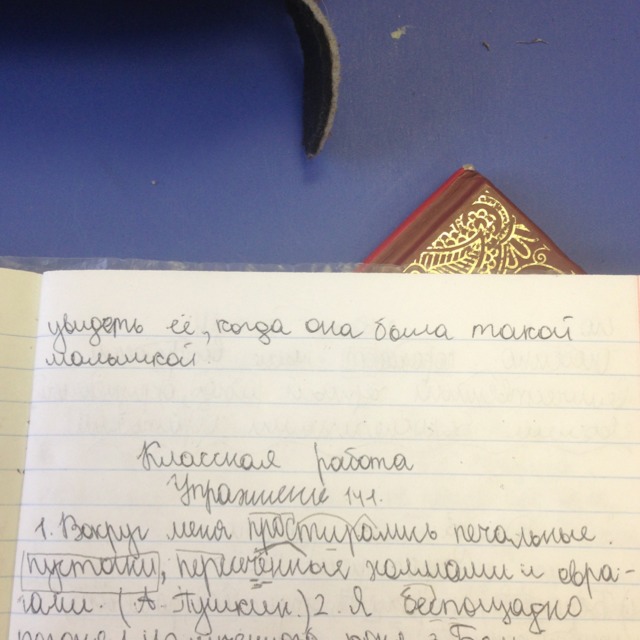 увидеть её, когда она была такой
малышкой
Классная работа
Упражнение 141.
1. Вокруг меня простирались печальные
пустыни, пересечённые холмами и овра-
гами. (А. Пушкин.) 2. Я беспощадно